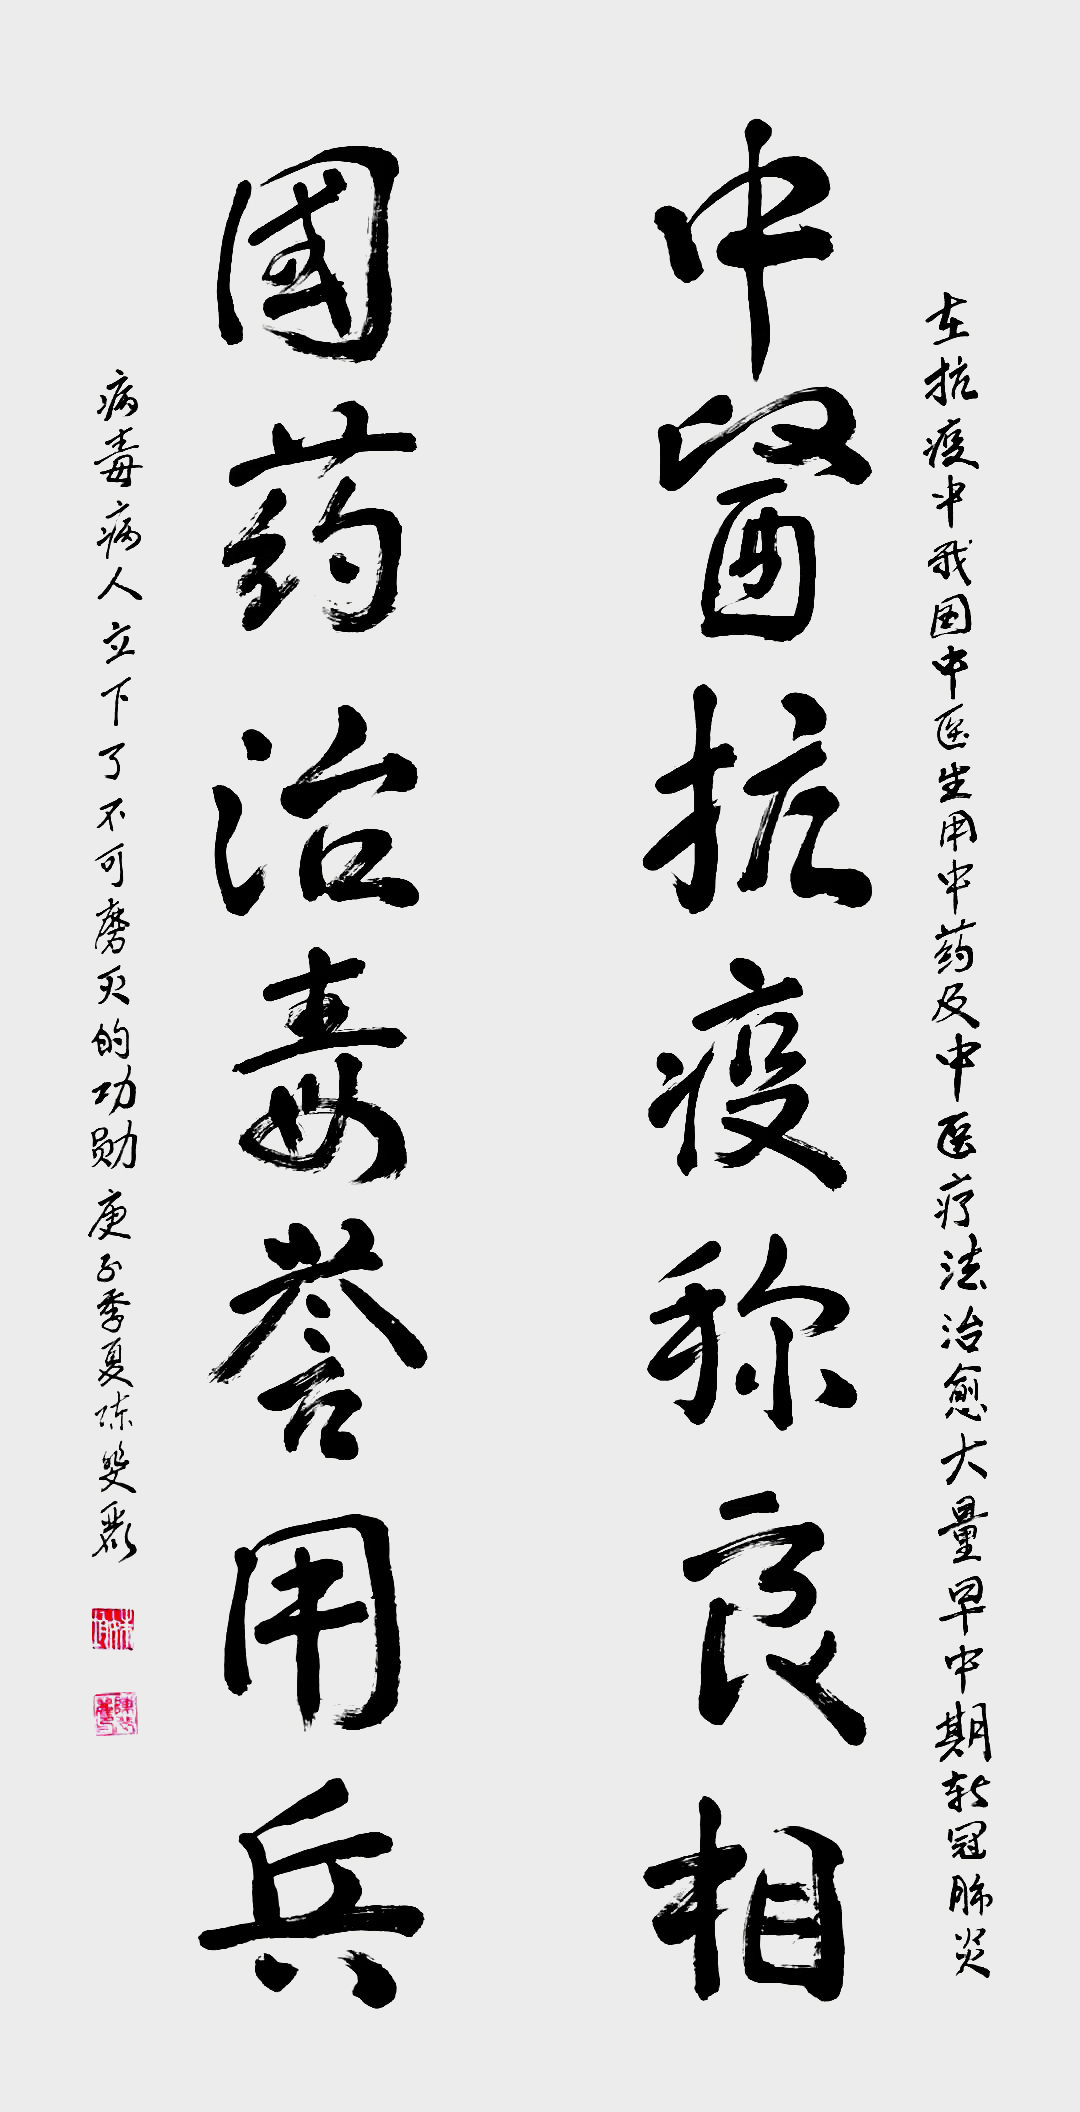 在抗疫中我国中医生用中药及中医疗法治愈大量早中期新冠肺炎
中醫抗疫称良相
國药治毒誉用兵
病毒病人立下了不可磨灭的功勋庚子季夏陈雙